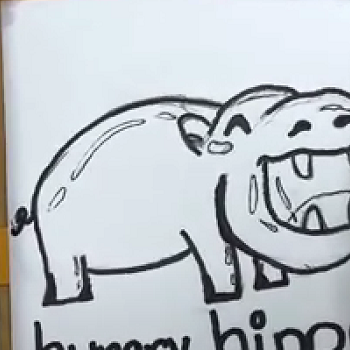 hungry hippo